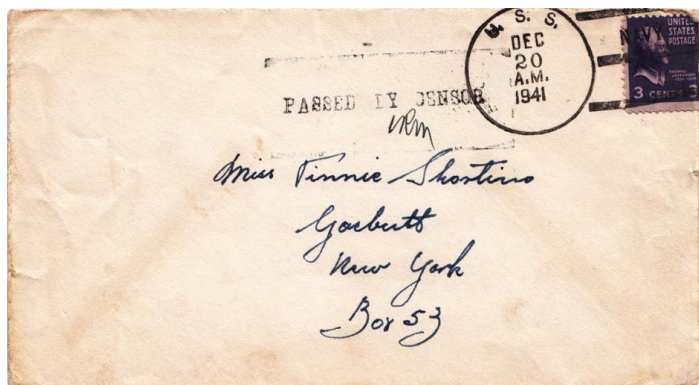 U. S. S.
DEC
20
A.M.
1941
NAVY
UNITED
STATES
POSTAGE
3 CENTS 3
PASSED BY CENSOR
Miss Tinnie Shortino
Garbutt
New York
Box 53